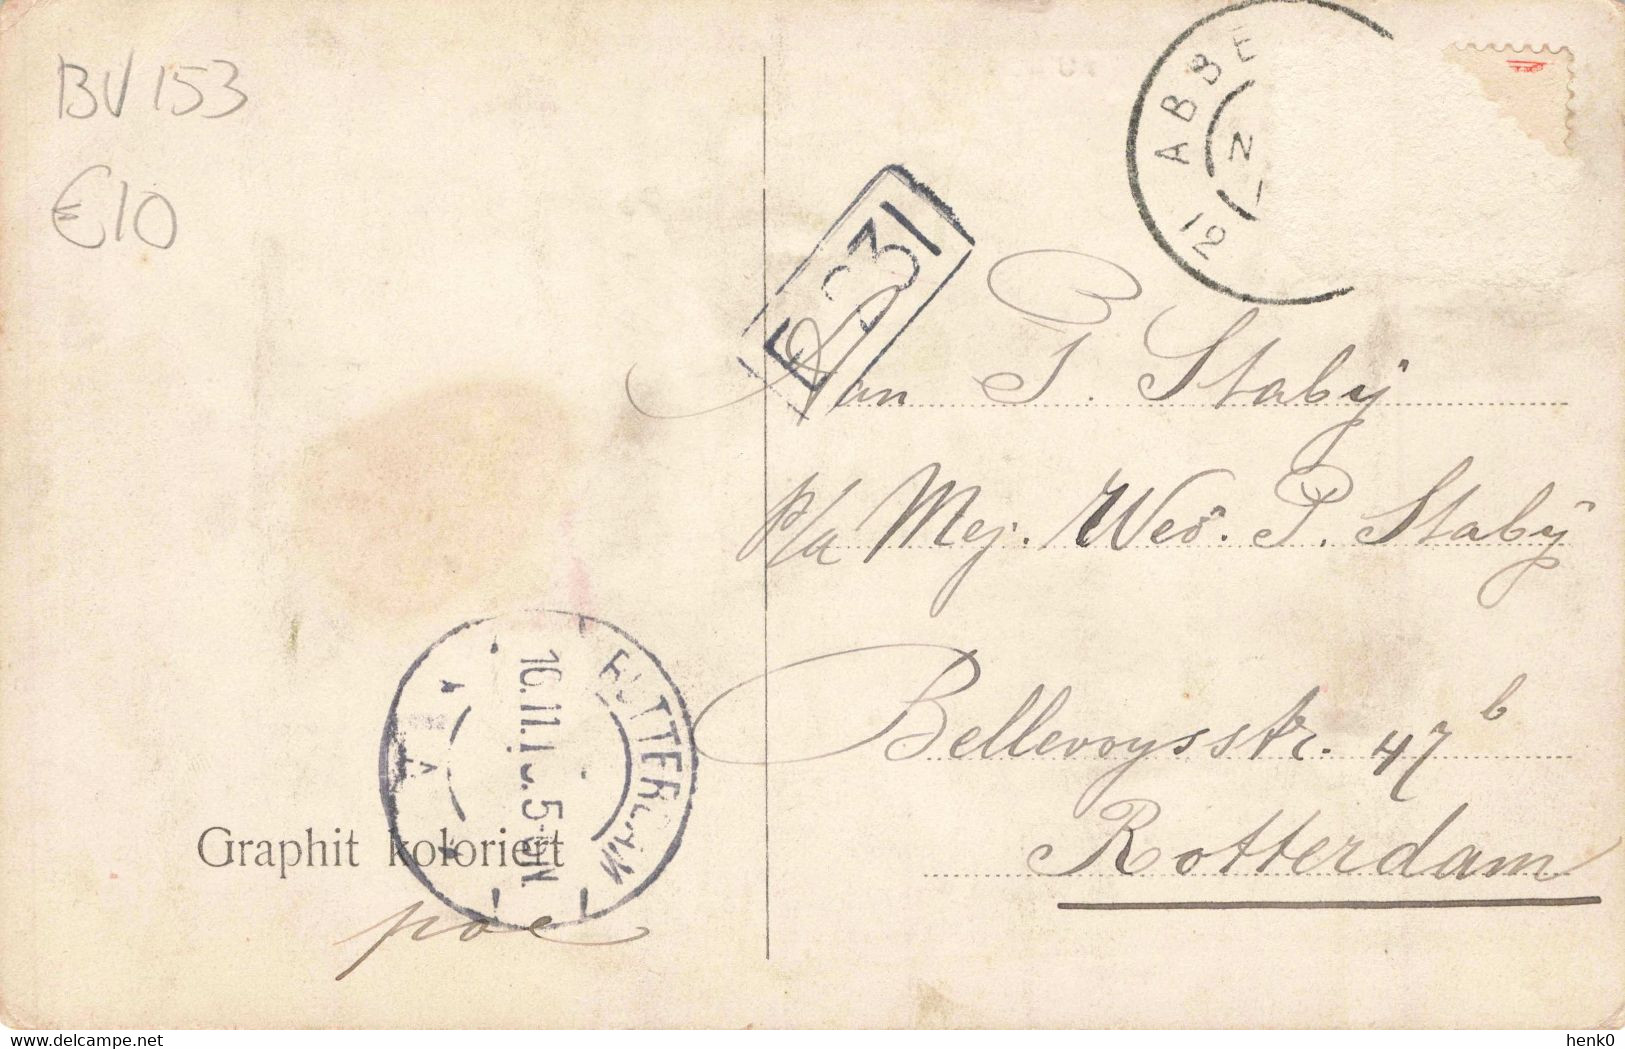 BV 153
€10
ABBE
12
231
Aan P. Stabÿ
p/a Mej. Wed. P. Stabÿ
Bellevoysstr. 47 b
Rotterdam
ROTTERDAM
16.11.
5-6N
Graphit koloriert
poe
henk0